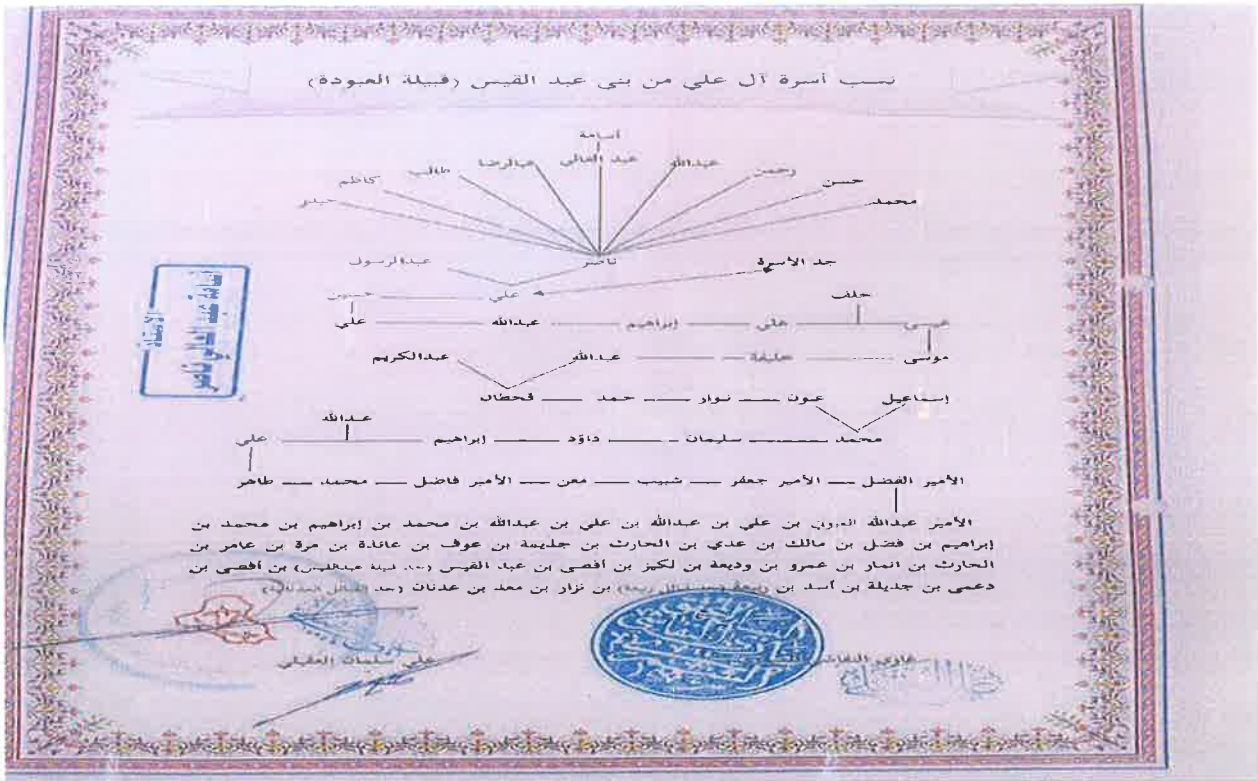 نسب أسرة آل علي من بني عبد القيس (قبيلة العبودة)
أسامة
محمد حسن رحمن عبدالله عبد العالي عبدالرضا طالب كاظم حيدر
جد الأسرة ناصر عبدالرسول
علي حسين
خلف
عيسى علي إبراهيم عبدالله علي
موسى خليفة عبدالله عبدالكريم
إسماعيل عون نوار حمد قحطان
عبدالله
محمد سليمان داؤد إبراهيم علي
الأمير الفضل الأمير جعفر شبيب معن الأمير فاضل محمد طاهر
الأمير عبدالله العيوني بن علي بن عبدالله بن علي بن عبدالله بن محمد بن إبراهيم بن محمد بن
إبراهيم بن فضل بن مالك بن عدي بن الحارث بن جذيمة بن عوف بن عائذة بن مرة بن عامر بن
الحارث بن انمار بن عمرو بن وديعة بن لكيز بن أفصى بن عبد القيس (جد قبيلة عبدالقيس) بن أفصى بن
دعمي بن جديلة بن أسد بن ربيعة بن نزار بن معد بن عدنان
علي سلمان العقيلي
الأستاذ
أسامة عبد العالي ناصر